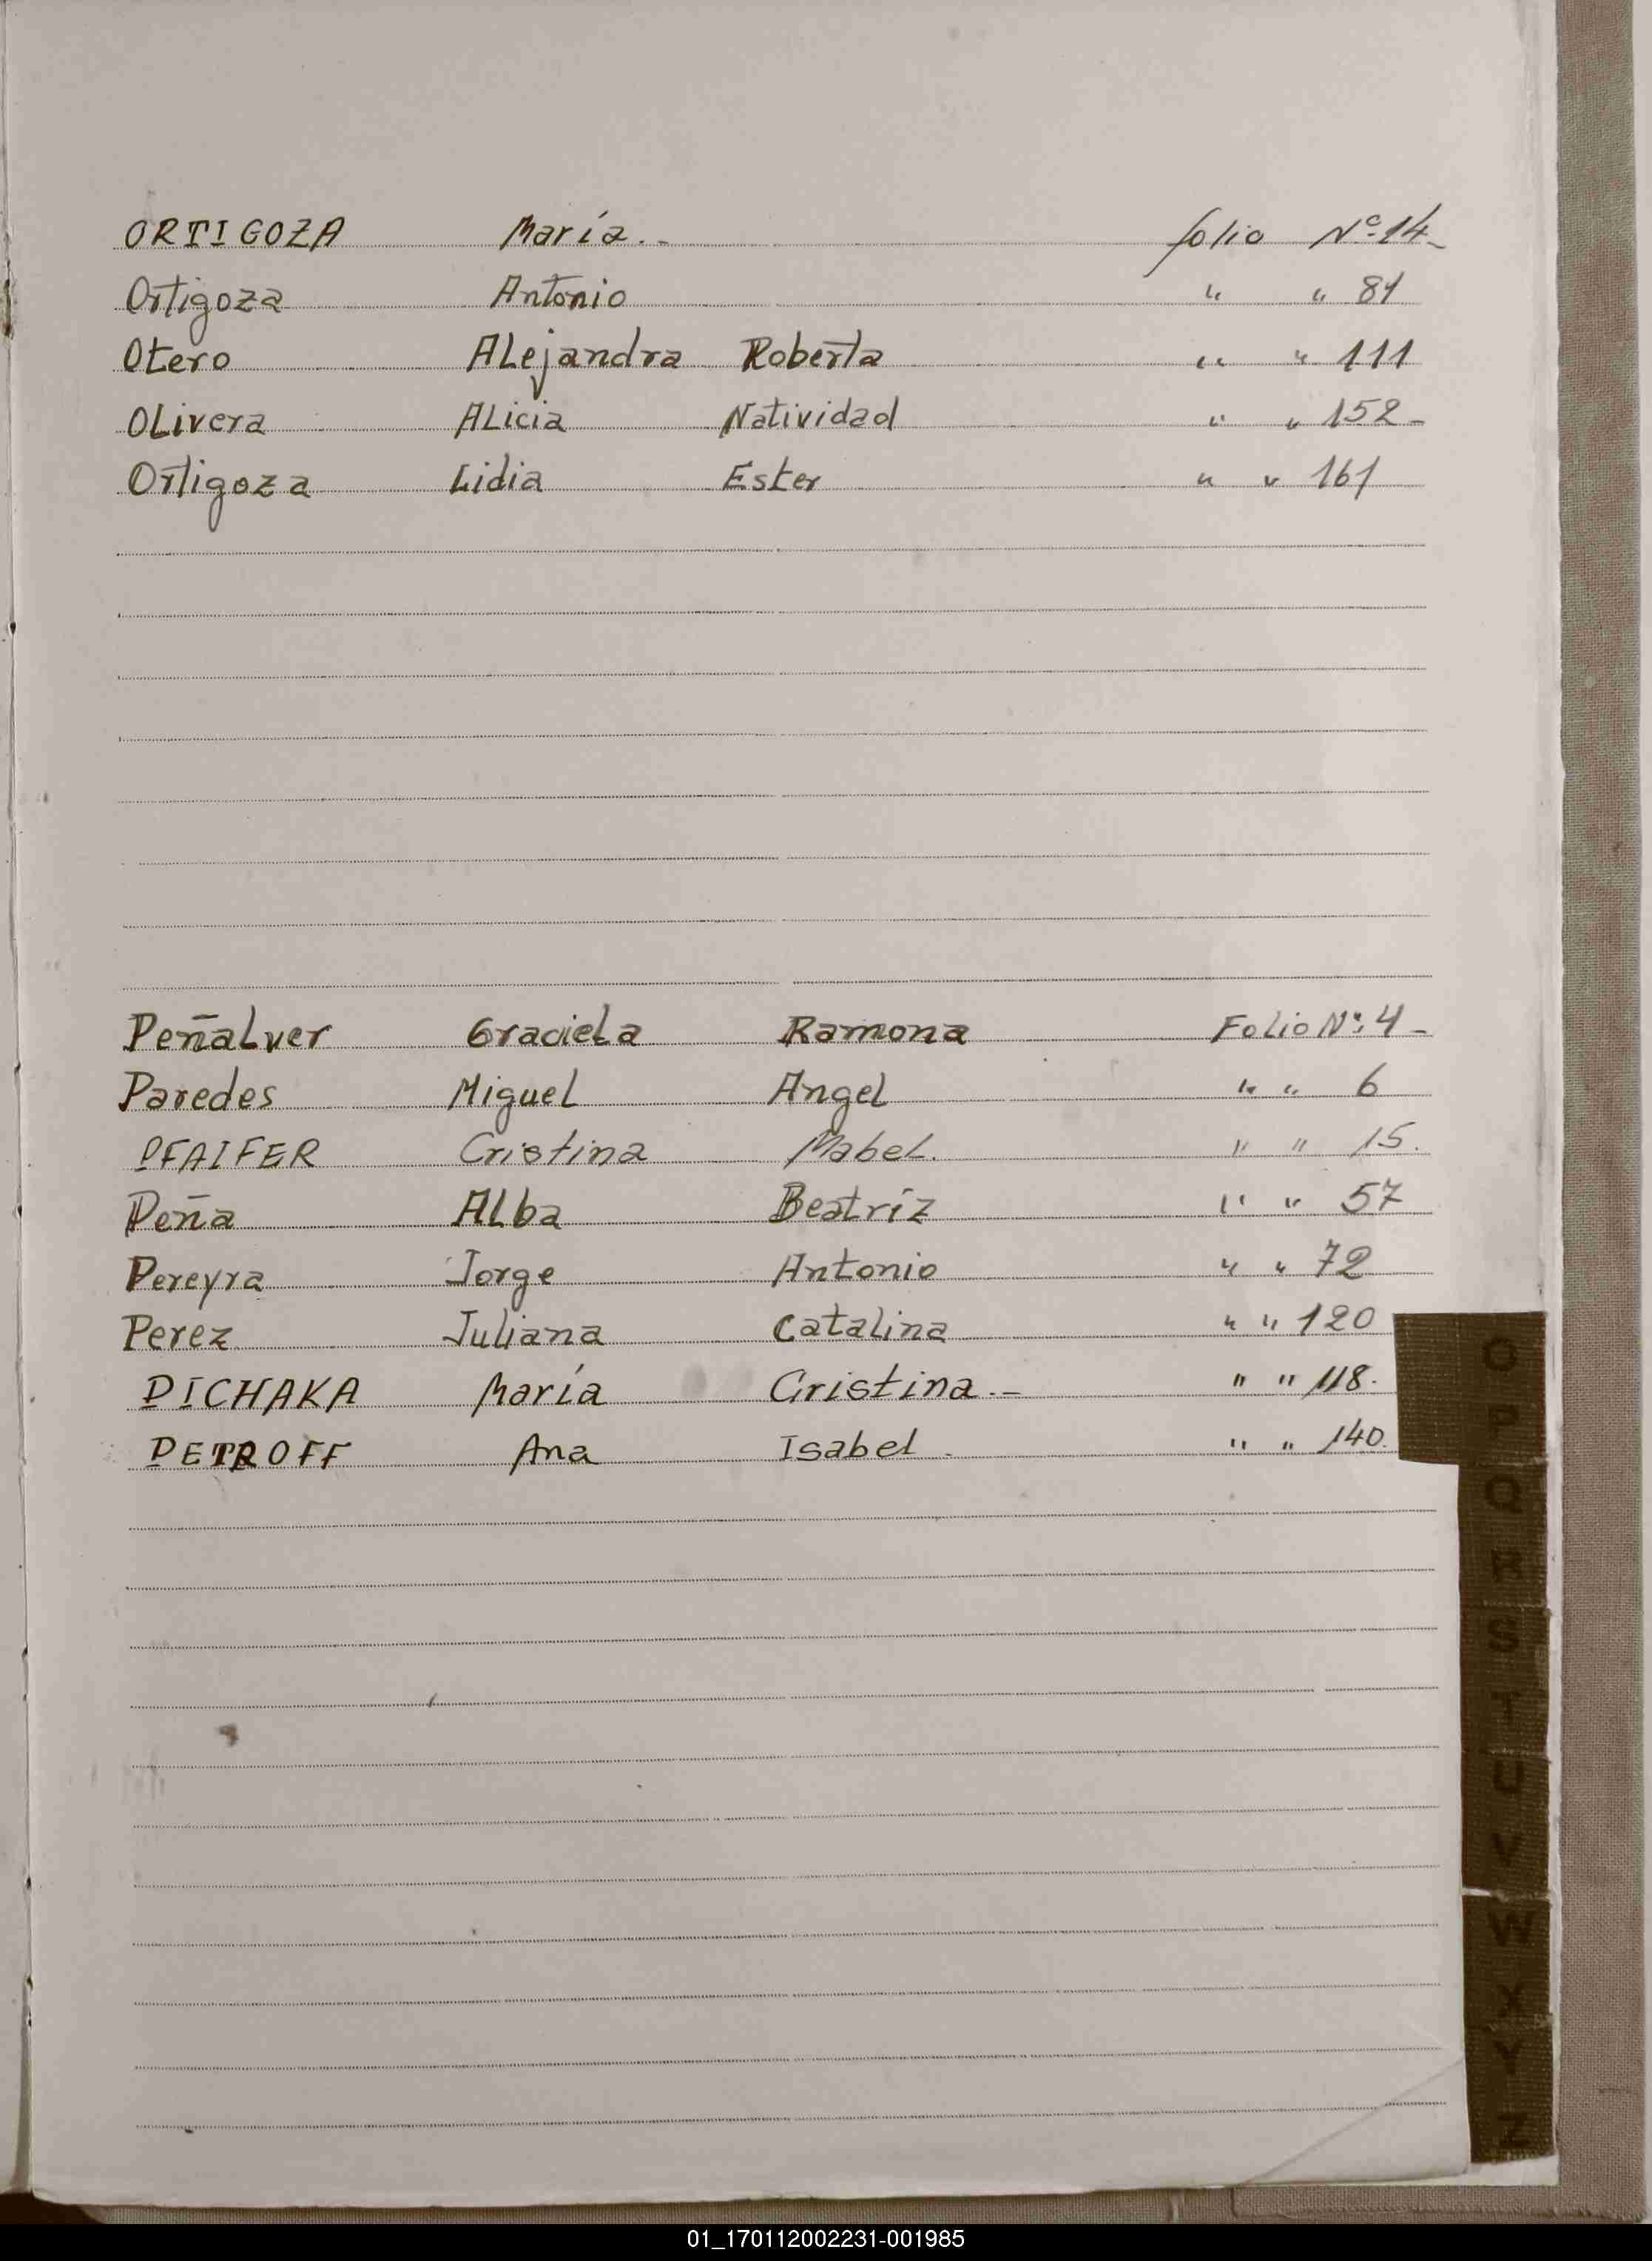 ORTIGOZA María.. folio Nº 14-
Ortigoza Antonio " " 81
Otero ALejandra Roberta " " 111
OLivera ALicia Natividad " " 152-
Ortigoza Lidia Ester " " 161
PeñaLver GracieLa Ramona FoLio Nº: 4-
Paredes Miguel Angel " " 6
PFAIFER Cristina MabeL. " " 15.
Peña ALba Beatríz " " 57
Pereyra Jorge Antonio " " 72
Perez Juliana Catalina " " 120
PICHAKA María Cristina.- " " 118.
PETROFF Ana Isabel. " " 140.
O
P
Q
R
S
T
U
V
W
X
Y
Z
01_170112002231-001985